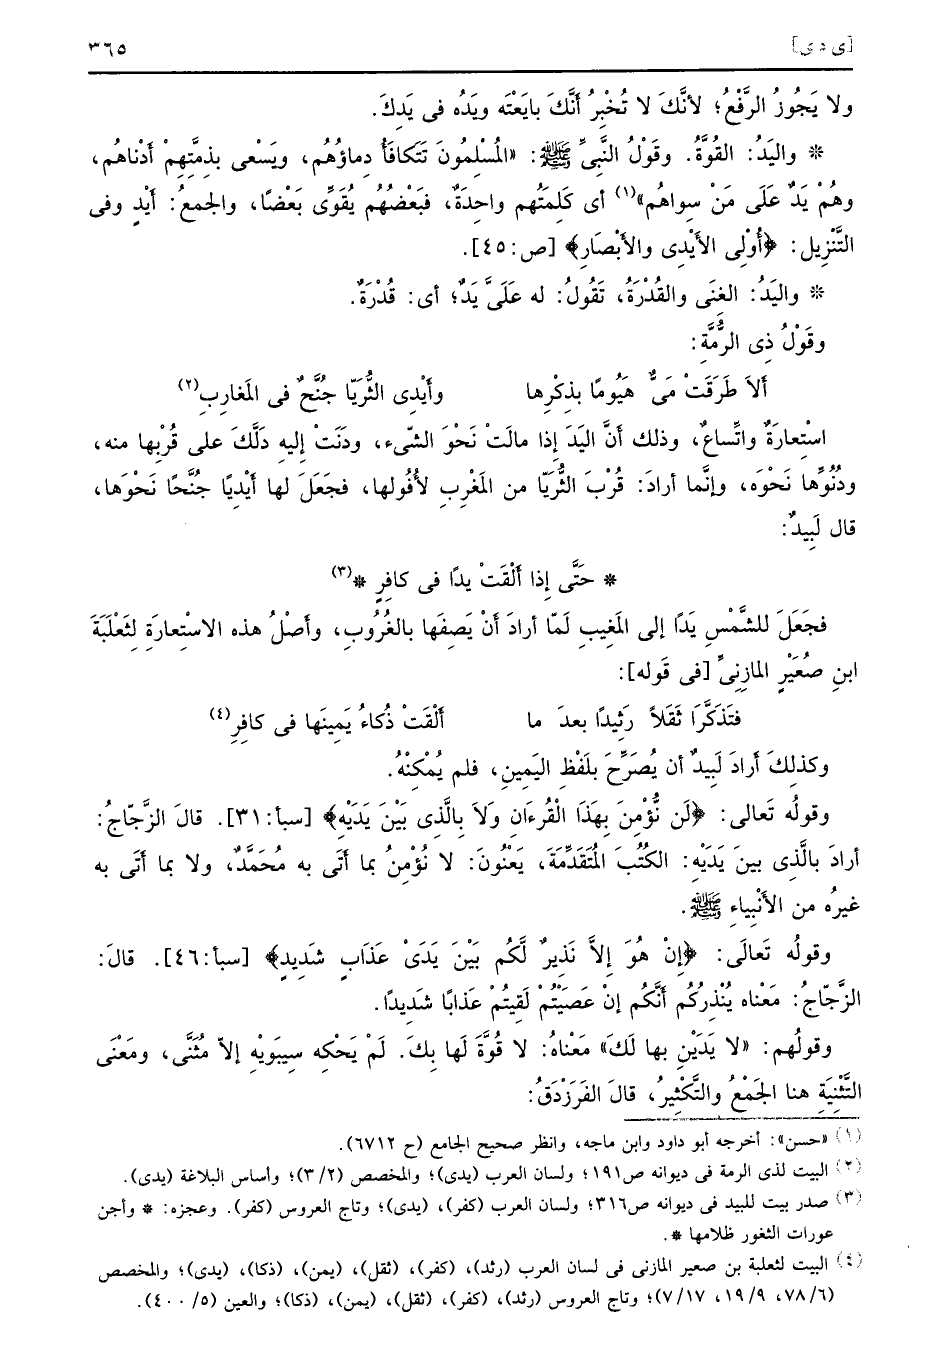 [ى د ى] ٣٦٥
ولا يَجُوزُ الرَّفْعُ؛ لأنَّكَ لا تُخْبِرُ أنَّكَ بايَعْتَه ويَدُه فى يَدِكَ.
* واليَدُ: القوَّةُ. وقَوْلُ النَّبىِّ ﷺ: «المُسْلِمُونَ تَتَكافَأُ دِماؤُهُم، ويَسْعى بذِمَّتِهِمْ أدْناهُم،
وهُمْ يَدٌ عَلَى مَنْ سِواهُم»(١) أى كَلِمَتُهم واحِدَةٌ، فبَعْضُهُم يُقوِّى بَعْضًا، والجمعُ: أيْدٍ وفى
التَّنْزِيل: ﴿أُوْلِى الأَيْدِى والأبْصَارِ﴾ [ص: ٤٥].
* واليَدُ: الغِنَى والقُدْرَةُ، تَقُولُ: له عَلَىَّ يَدٌ؛ أى: قُدْرَةٌ.
وقَوْلُ ذِى الرُّمَّةِ:
ألاَ طَرَقَتْ مَىٌّ هَيُومًا بذِكْرِها وأيْدِى الثُّريّا جُنَّحٌ فى المَغارِبِ(٢)
اسْتِعارَةٌ واتِّساعٌ، وذلك أنَّ اليَدَ إذا مالَتْ نَحْوَ الشّىء، ودَنَتْ إليه دَلَّكَ على قُرْبِها منه،
ودُنُوِّها نَحْوَه، وإنَّما أرادَ: قُرْبَ الثُّريّا من المَغْرِبِ لأُفُولها، فجَعَلَ لها أيْديًا جُنَّحًا نَحْوَها،
قال لَبِيدٌ:
* حَتَّى إذا ألْقَتْ يدًا فى كافِرٍ *(٣)
فجَعَلَ للشَّمْسِ يَدًا إلى المَغِيبِ لَمّا أرادَ أنْ يَصِفَها بالغُرُوبِ، وأصْلُ هذه الاسْتِعارَةِ لثَعْلَبَةَ
ابنِ صُعَيْرٍ المازِنِىِّ [فى قَوله]:
فتَذَكَّرَا ثَقَلاً رَثِيدًا بعدَ ما ألْقَتْ ذُكاءُ يَمِينَها فى كافِرِ(٤)
وكذلِكَ أرادَ لَبِيدٌ أن يُصَرِّحَ بلَفْظِ اليَمِينِ، فلم يُمْكِنْهُ.
وقولُه تَعالى: ﴿لَن نُّؤْمِنَ بِهَذَا الْقُرءَانِ وَلاَ بِالَّذِى بَيْنَ يَدَيْهِ﴾ [سبأ: ٣١]. قالَ الزَّجّاجُ:
أرادَ بالَّذِى بينَ يَدَيْهِ: الكُتُبَ المُتَقدِّمَةَ، يَعْنُونَ: لا نُؤْمِنُ بما أتَى به مُحَمَّدٌ، ولا بما أتَى به
غيرُه من الأنْبِياءِ ﷺ.
وقولُه تَعالَى: ﴿إنْ هُوَ إلاَّ نَذِيرٌ لَّكُم بَيْنَ يَدَىْ عَذَابٍ شَدِيدٍ﴾ [سبأ: ٤٦]. قالَ:
الزَّجّاجُ: مَعْناه يُنْذِرُكُم أنَّكُم إنْ عَصَيْتُمْ لَقِيتُمْ عَذابًا شَدِيدًا.
وقولُهم: «لا يَدَيْنِ بها لَكَ» مَعْناهُ: لا قُوَّةَ لَها بِكَ. لَمْ يَحْكِه سِيبَوَيْهِ إلاّ مُثَنَّى، ومَعْنَى
التَّثْنِيَةِ هنا الجَمْعُ والتَّكْثِيرُ، قالَ الفَرَزْدَقُ:
(١) «حسن»: أخرجه أبو داود وابن ماجه، وانظر صحيح الجامع (ح ٦٧١٢).
(٢) البيت لذى الرمة فى ديوانه ص١٩١؛ ولسان العرب (يدى)؛ والمخصص (٣/٢)؛ وأساس البلاغة (يدى).
(٣) صدر بيت للبيد فى ديوانه ص٣١٦؛ ولسان العرب (كفر)، (يدى)؛ وتاج العروس (كفر). وعجزه: * وأجن
عورات الثغور ظلامها *.
(٤) البيت لثعلبة بن صعير المازنى فى لسان العرب (رثد)، (كفر)، (ثقل)، (يمن)، (ذكا)، (يدى)؛ والمخصص
(٧٨/٦، ١٩/٩، ٧/١٧)؛ وتاج العروس (رثد)، (كفر)، (ثقل)، (يمن)، (ذكا)؛ والعين (٤٠٠/٥).